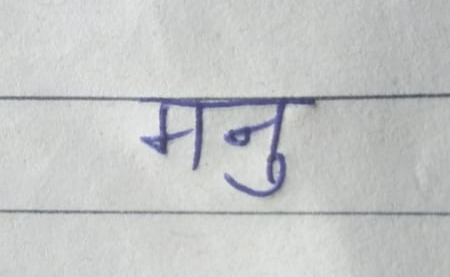 मनु